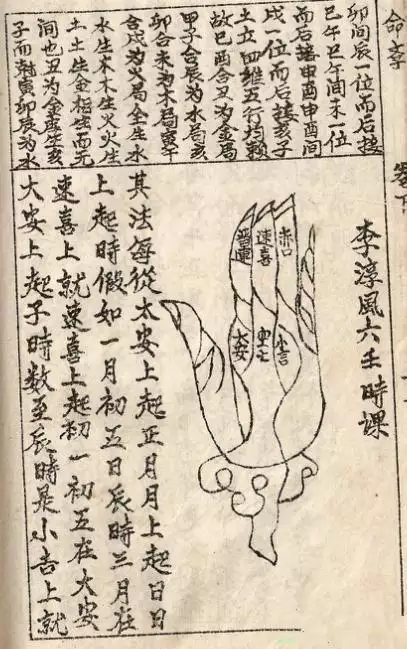 命学
卯间辰一位而后接
巳午巳午間未一位
而后接申酉申酉间
戌一位而后接亥子
土立四維五行均頼
故巳酉合丑为金局
甲子合辰为水局亥
卯合未为木局寅午
合戌为火局金生水
水生木木生火火生
土土生金相生而无
间也丑为金生亥
子而寅卯辰为水
李淳風六壬時課
赤口
速喜
小吉
空亡
大安
其法每從太安上起正月月上起日日
上起時假如一月初五日辰時三月在
速喜上就速喜上起初一初五在大安
大安上起子時数至辰時是小吉上就